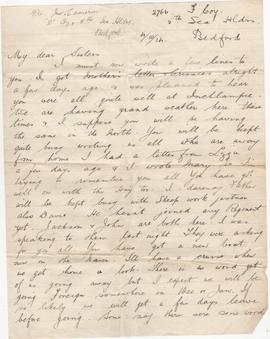 Pte. Jno. Cameron
2766 3 Coy.
6th Sea. Hldrs.
Bedford
My dear Sisters
I must now write a few lines to
you. I got brothers letter alright
a few days ago & was pleased to hear
you were all quite well at
We are having grand weather here these
times & I suppose you will be having
the same in the North. You will be kept
quite busy writing us all who are away
from home. I had a letter from Lizzie
a few days ago & I wrote Mary. I'm
trying to remember you all. You have got
well on with the too. I daresay Father
will be kept busy with Sheep work just now
also Dave. He hasn't joined any Regiment
yet. Jackson & John are both here. I was
speaking to them last night. They were asking
for you all. You have got a new boat
now on the haven. I'll have a when
we get home a look. There is no word yet
of us going away but I expect we will be
going Foreign somewhere in Dec or Jan. If
so likely we will get a few days leave
before going. Some say there were some word